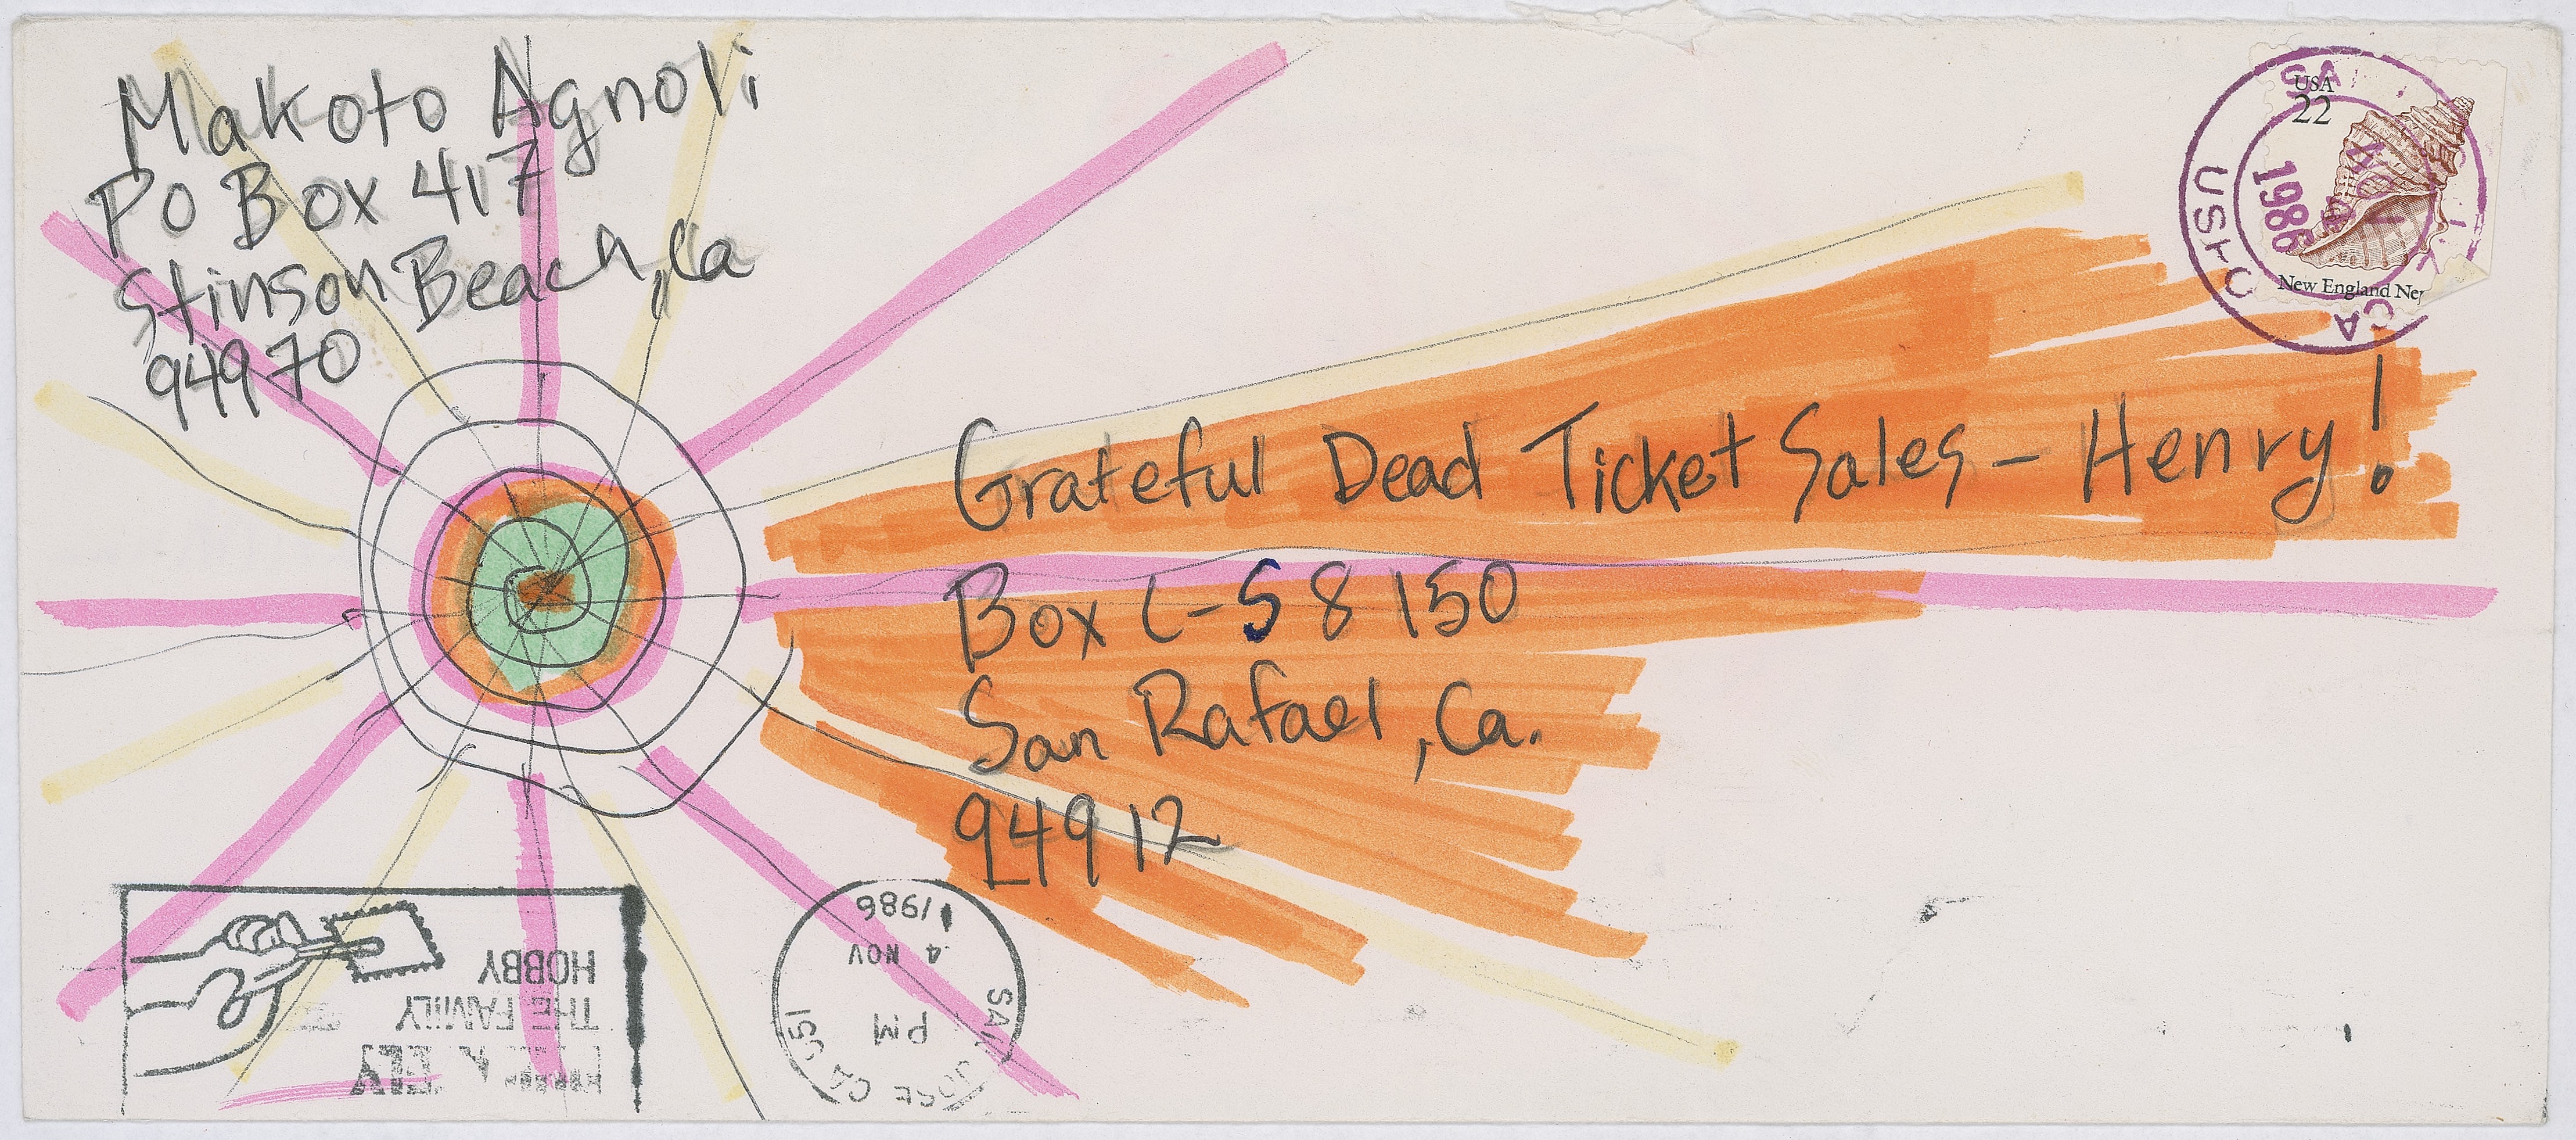 Makoto Agnoli
PO Box 417
Stinson Beach, Ca
94970
USA
22
New England Nep
1986
USPO
CA
Grateful Dead Ticket Sales - Henry!
Box C-S 8150
San Rafael, Ca.
94912
SAN JOSE CA 951
PM
4 NOV
1986
THE FAMILY
HOBBY